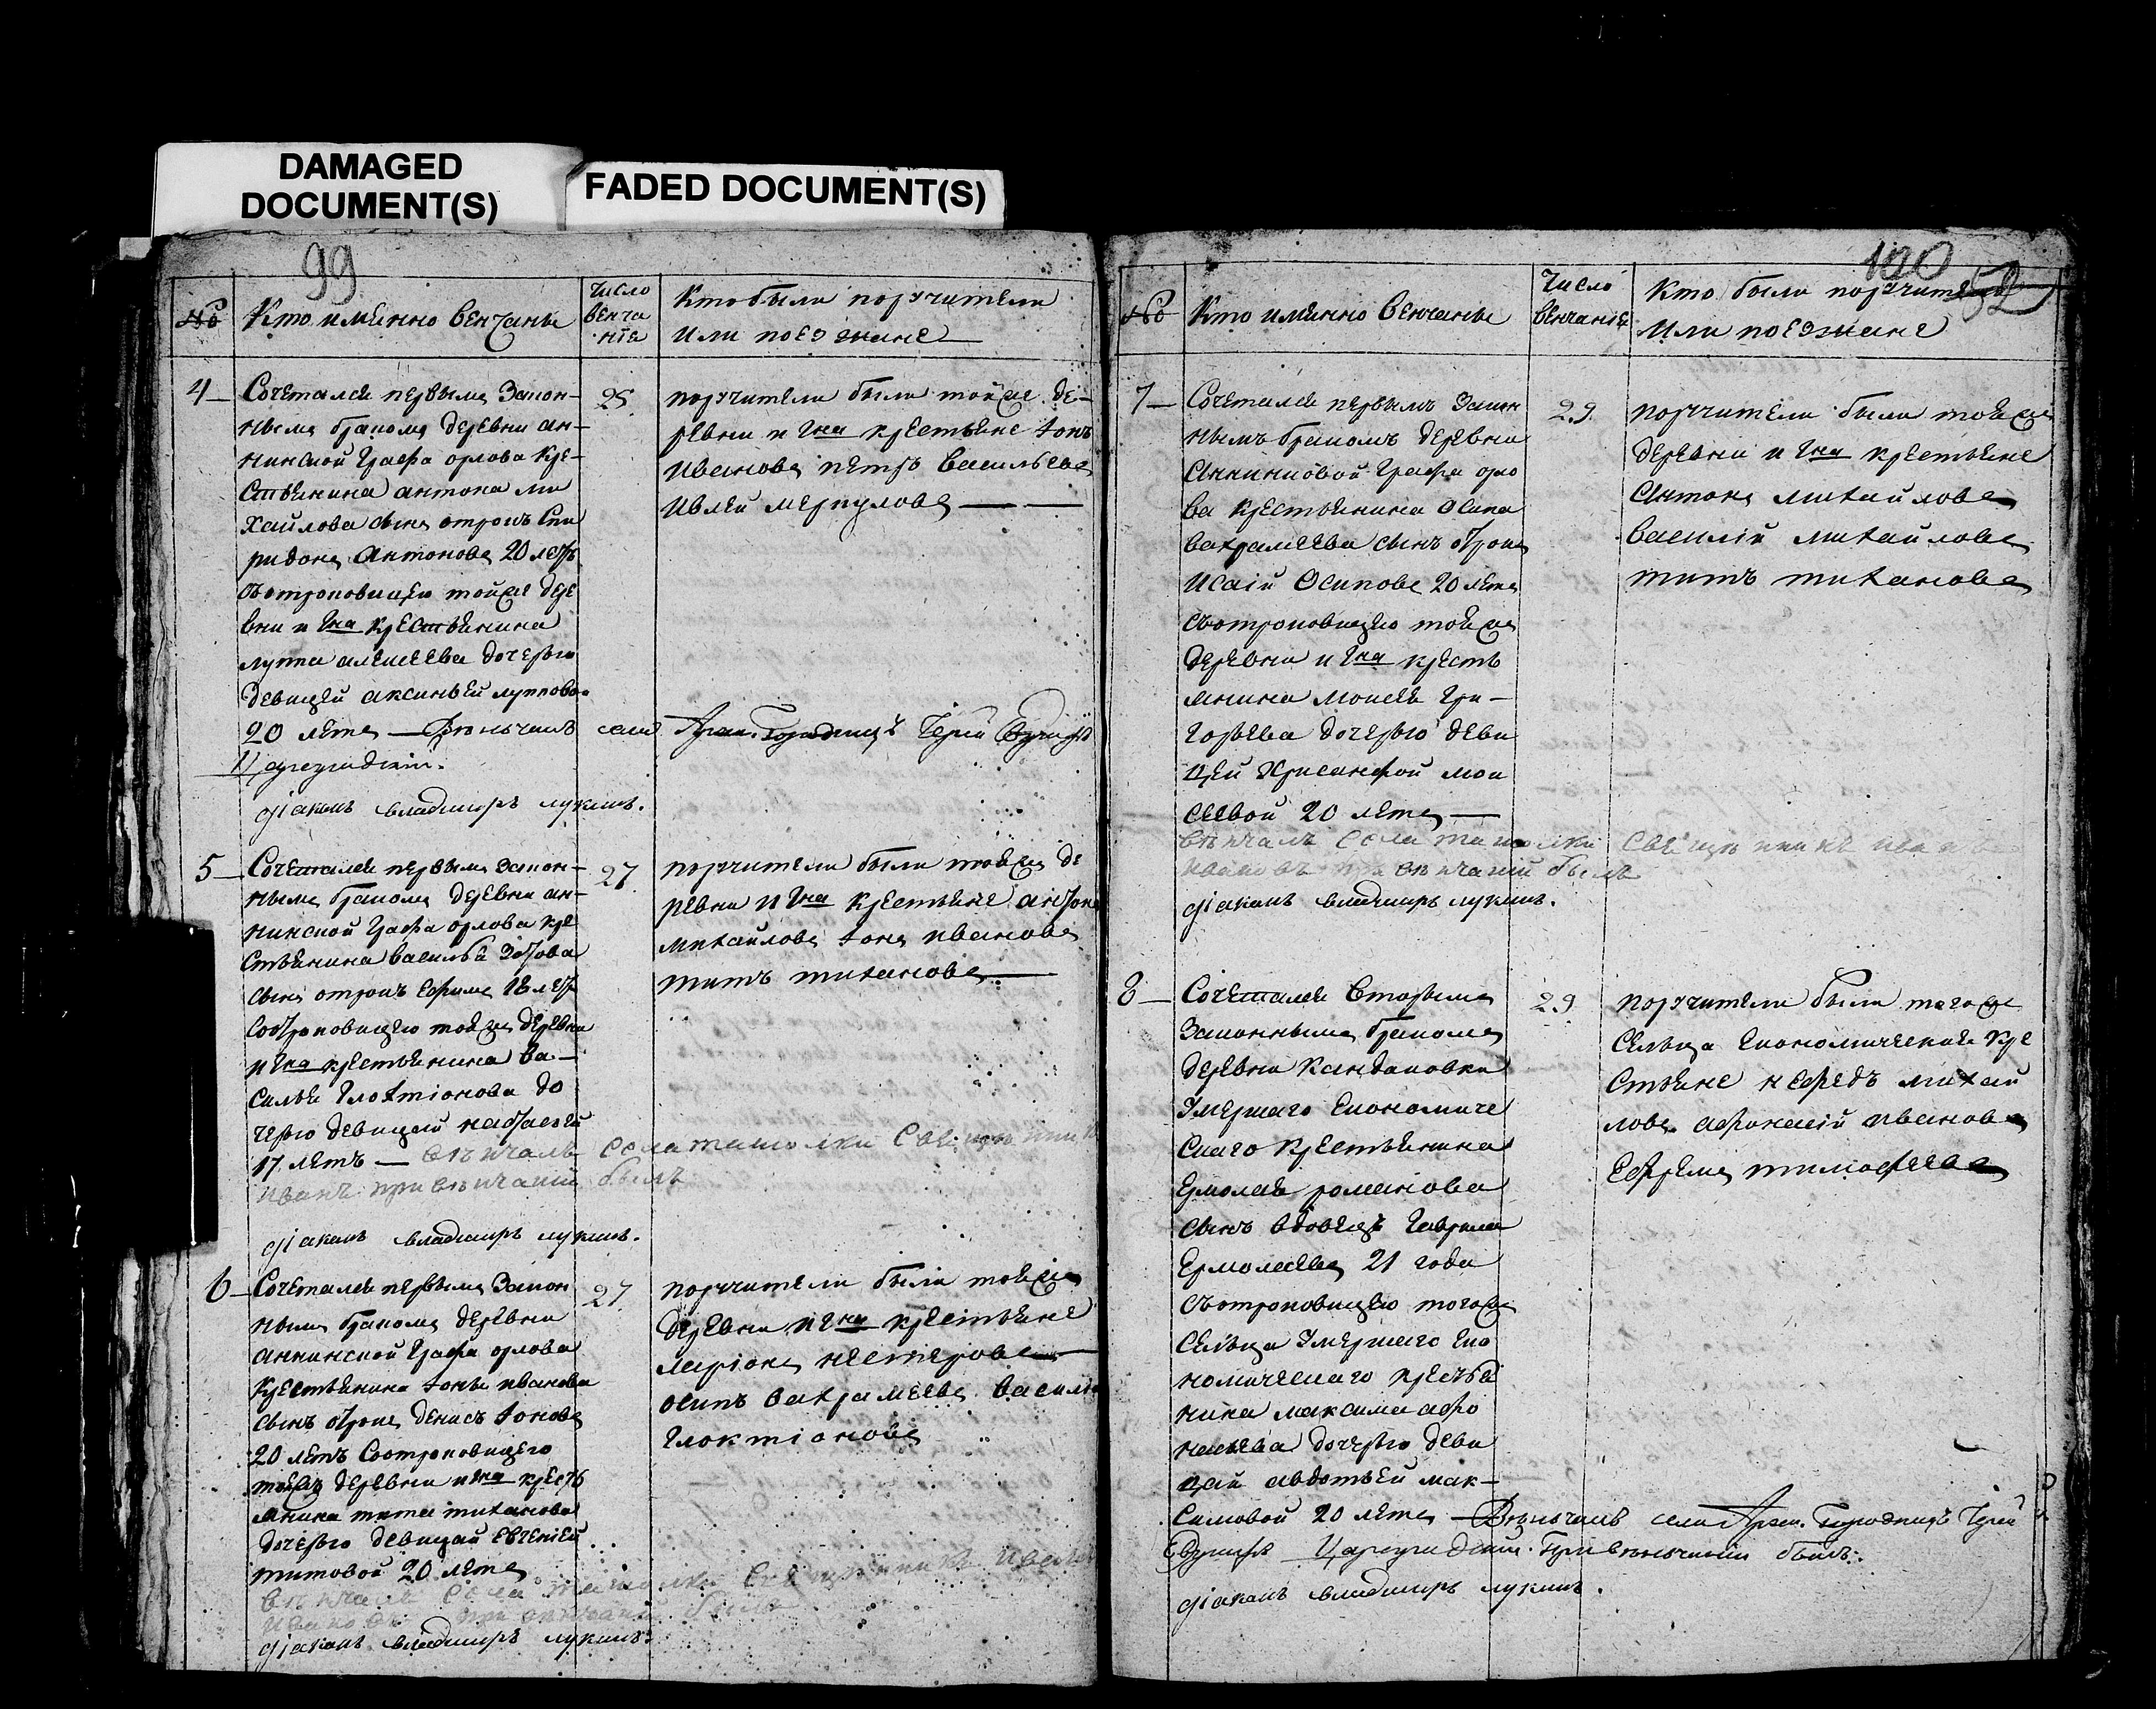 DAMAGED
DOCUMENT(S)
FADED DOCUMENT(S)
99
№
Кто именно венчаны
Число
венча
нїя
Кто были поручители
или поезжане
4
Сочетался первымъ закон-
нымъ бракомъ деревни ан-
нинской Графа орлова кре-
стьянина антона ми
хайлова сынъ отрокъ Спи
ридонъ Антоновъ 20 летъ
съотроковицею тойже дере
вни и Гна крестьянина
луппа алексеева дочерью
девицей аксиньей лупповой
20 летъ — Вѣнчалъ села
Цареградскій.
дїаконъ владимиръ лукинъ.
25
поручители были тойже де-
ревни и Гна крестьяне Iонъ
Ивановъ петръ васильевъ
Ивлей меркуловъ
5
Сочетался первымъ закон-
нымъ бракомъ деревни ан-
нинской Графа орлова кре
стьянина василья Зотова
сынъ отрокъ Ефимъ 18 летъ
соотроковицею тойже деревни
и Гна крестьянина Ва-
силья Глохтїонова до
черью девицей настасьей
17 летъ — вѣнчалъ села Священникъ
Иванъ при вѣнчаніи былъ
дїаконъ владимиръ лукинъ.
27
поручители были тойже де
ревни и Гна крестьяне антонъ
михайловъ Iонъ ивановъ
титъ тихановъ
6
Сочетался первымъ закон
нымъ бракомъ деревни
аннинской Графа орлова
крестьянина Iоны иванова
сынъ отрокъ денисъ Iоновъ
20 летъ соотроковицего
тойже деревни и Гна кресть
янина тита тиханова
дочерью девицей евгенїей
титовой 20 летъ
вѣнчалъ села Священникъ
при вѣнчаніи былъ
дїаконъ владимиръ лукинъ.
27
поручители были тойже
деревни и Гна крестьяне
ларїонъ нестеровъ
осипъ вахрамеевъ василей
глоктїоновъ
100
52
№
Кто именно венчаны
Число
венчанія
Кто были поручители
или поезжане
7
Сочетался первымъ закон
нымъ бракомъ деревни
Аннинковой Графа орло
ва крестьянина осипа
Вахрамеева сынъ отрокъ
Исаїй Осиповъ 20 летъ
съотроковицею тойже
деревни и Гна кресть
янина моисея Гри-
горьева дочерью деви
цей Хрисанфой мои
сеевой 20 летъ
вѣнчалъ села Священникъ
при вѣнчаніи былъ
дїаконъ владимиръ лукинъ.
29
поручители были тойже
деревни и Гна крестьяне
Антонъ михайловъ
Василїй михайловъ
титъ тихановъ
8
Сочетался вторымъ
законнымъ бракомъ
деревни Кандаковки
умершаго економиче
скаго крестьянина
Ермолая романова
сынъ вдовецъ Гаврила
Ермолаевъ 21 года
съотроковицею тогоже
сельца умершаго еко
номическаго крестья
нина максима афо
насьева дочерью деви
цей авдотьей мак-
симовой 20 летъ — Вѣнчалъ села
Цареградскій. При вѣнчаніи былъ.
дїаконъ владимиръ лукинъ.
29
поручители были тогоже
сельца економическїе кре
стьяне нефедъ михай
ловъ афонасїй ивановъ
Ефремъ тимофеевъ